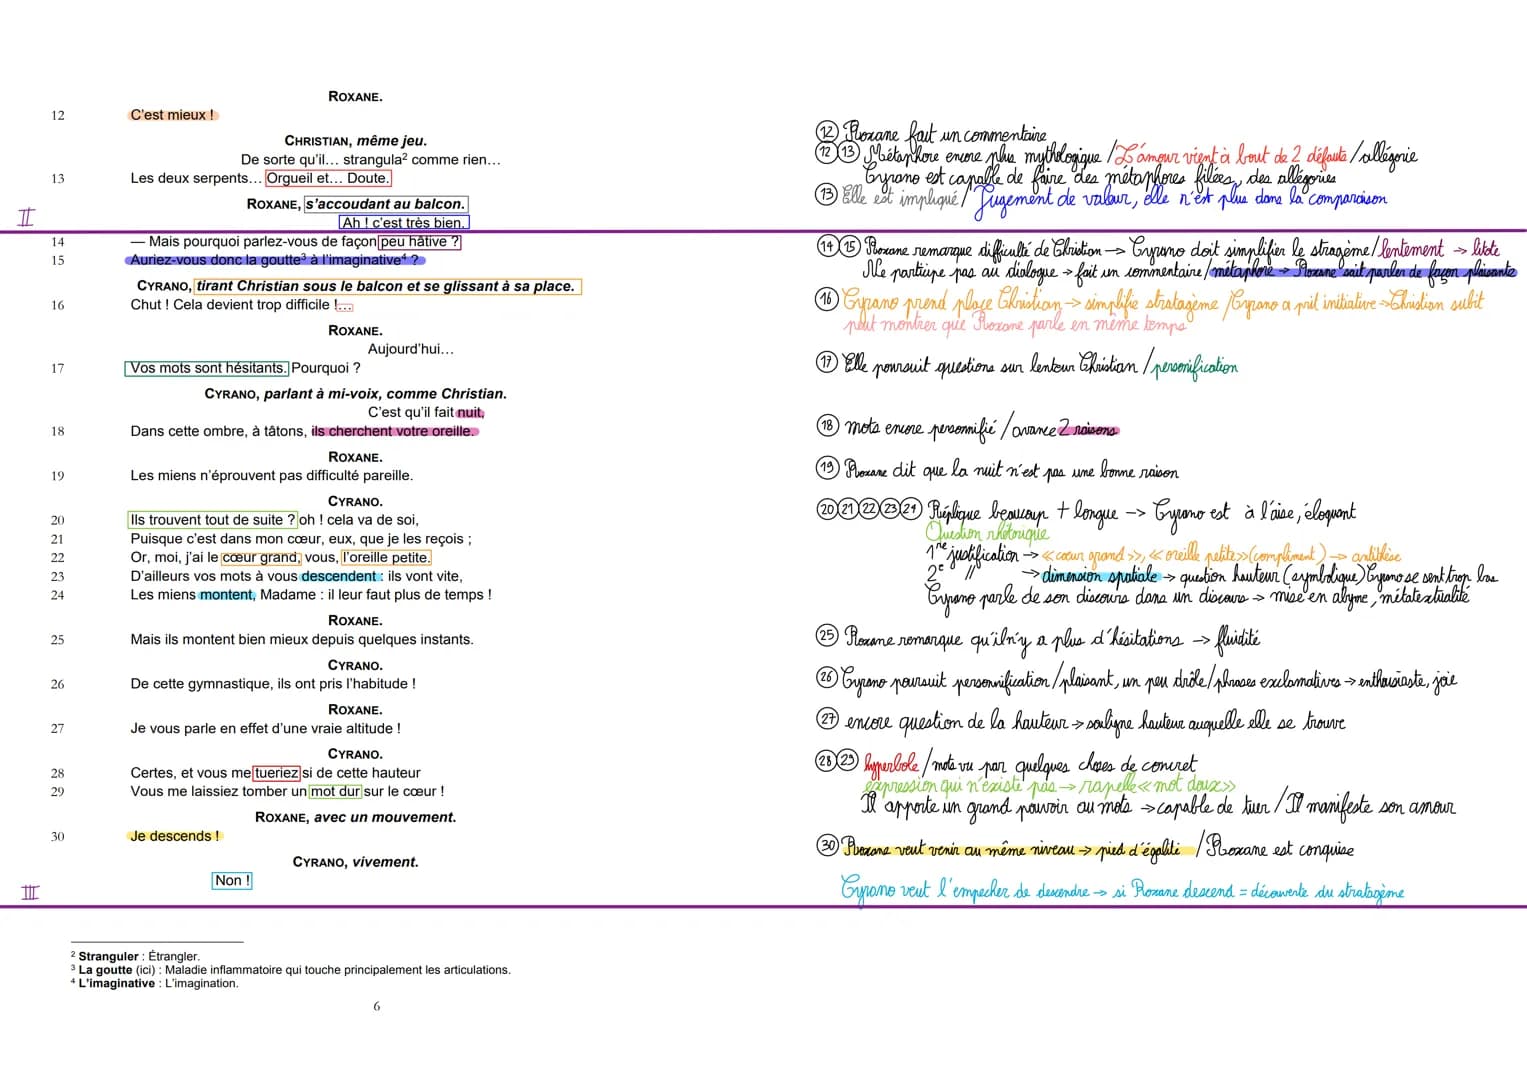 ROXANE.
12 C'est mieux !
CHRISTIAN, même jeu.
De sorte qu'il... strangula² comme rien...
13 Les deux serpents... Orgueil et... Doute.
ROXANE, s'accoudant au balcon.
II
Ah ! c'est très bien.
14 — Mais pourquoi parlez-vous de façon peu hâtive ?
15 Auriez-vous donc la goutte³ à l'imaginative⁴ ?
CYRANO, tirant Christian sous le balcon et se glissant à sa place.
16 Chut ! Cela devient trop difficile !...
ROXANE.
Aujourd'hui...
17 Vos mots sont hésitants. Pourquoi ?
CYRANO, parlant à mi-voix, comme Christian.
C'est qu'il fait nuit,
18 Dans cette ombre, à tâtons, ils cherchent votre oreille.
ROXANE.
19 Les miens n'éprouvent pas difficulté pareille.
CYRANO.
20 Ils trouvent tout de suite ? oh ! cela va de soi,
21 Puisque c'est dans mon cœur, eux, que je les reçois ;
22 Or, moi, j'ai le cœur grand, vous, l'oreille petite.
23 D'ailleurs vos mots à vous descendent : ils vont vite,
24 Les miens montent, Madame : il leur faut plus de temps !
ROXANE.
25 Mais ils montent bien mieux depuis quelques instants.
CYRANO.
26 De cette gymnastique, ils ont pris l'habitude !
ROXANE.
27 Je vous parle en effet d'une vraie altitude !
CYRANO.
28 Certes, et vous me tueriez si de cette hauteur
29 Vous me laissiez tomber un mot dur sur le cœur !
ROXANE, avec un mouvement.
30 Je descends !
CYRANO, vivement.
Non !
III
² Stranguler : Étrangler.
³ La goutte (ici) : Maladie inflammatoire qui touche principalement les articulations.
⁴ L'imaginative : L'imagination.
6
12 Roxane fait un commentaire
12 13 Métaphore encore plus mythologique / L'amour vient à bout de 2 défauts / allégorie
Cyrano est capable de faire des métaphores filées, des allégories
13 Elle est impliqué / Jugement de valeur, elle n'est plus dans la comparaison
14 15 Roxane remarque difficulté de Christian → Cyrano doit simplifier le stragème / lentement → litote
Ne participe pas au dialogue → fait un commentaire / métaphore → Roxane sait parler de façon plaisante
16 Cyrano prend place Christian → simplifie stratagème / Cyrano a prit initiative → Christian subit
peut montrer que Roxane parle en même temps
17 Elle poursuit questions sur lenteur Christian / personification
18 mots encore personnifié / avance 2 raisons
19 Roxane dit que la nuit n'est pas une bonne raison
20 21 22 23 24 Réplique beaucoup + longue -> Cyrano est à l'aise, éloquent
Question rhétorique
1re justification → « cœur grand », « oreille petite » (compliment) → antithèse
2e // → dimension spatiale → question hauteur (symbolique) Cyrano se sent trop bas
Cyrano parle de son discours dans un discours → mise en abyme, métatextualité
25 Roxane remarque qu'il n'y a plus d'hésitations → fluidité
26 Cyrano poursuit personnification / plaisant, un peu drôle / phrases exclamatives → enthousiaste, joie
27 encore question de la hauteur → souligne hauteur auquelle elle se trouve
28 29 hyperbole / mots vu par quelques choses de concret
expression qui n'existe pas → rapelle « mot doux »
Il apporte un grand pouvoir au mots → capable de tuer / Il manifeste son amour
30 Roxane veut venir au même niveau → pied d'égalité / Roxane est conquise
Cyrano veut l'empecher de descendre → si Roxane descend = découverte du stratagème